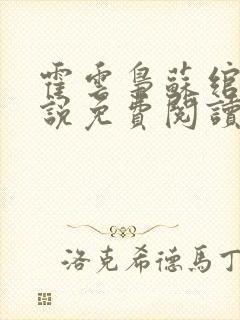 霍雲梟蘇綰
說免費閱讀
洛克希德馬丁